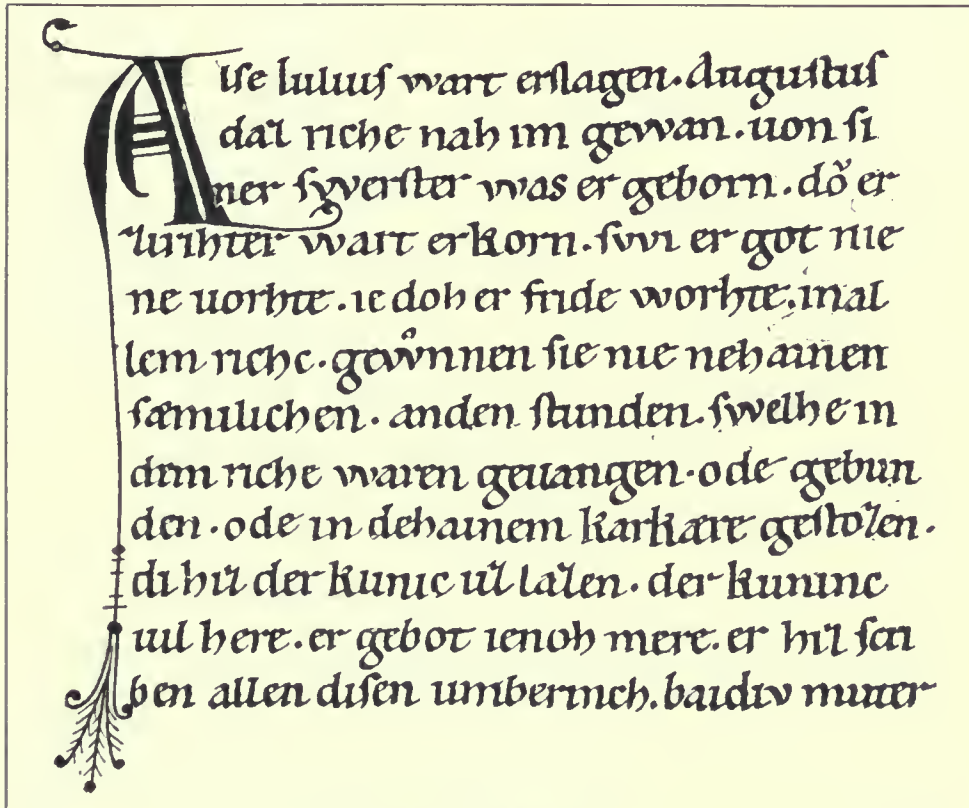 Alse Iulius wart erslagen. Augustus
daz riche nah im gewan. uon si
ner swester was er geborn. do er
ze rihter wart erkorn. swi er got nie
ne uorhte. ie doh er fride worhte. in al
lem riche. gewͦnnen sie nie nehainen
sæmilichen. an den stunden. swelhe in
dem riche waren geuangen. ode gebun
den. ode in dehainem karkære gestozen.
di hiz der kunic uz lazen. der kuninc
uil here. er gebot ienoh mere. er hiz scri
ben allen disen umberinch. baidiv muter